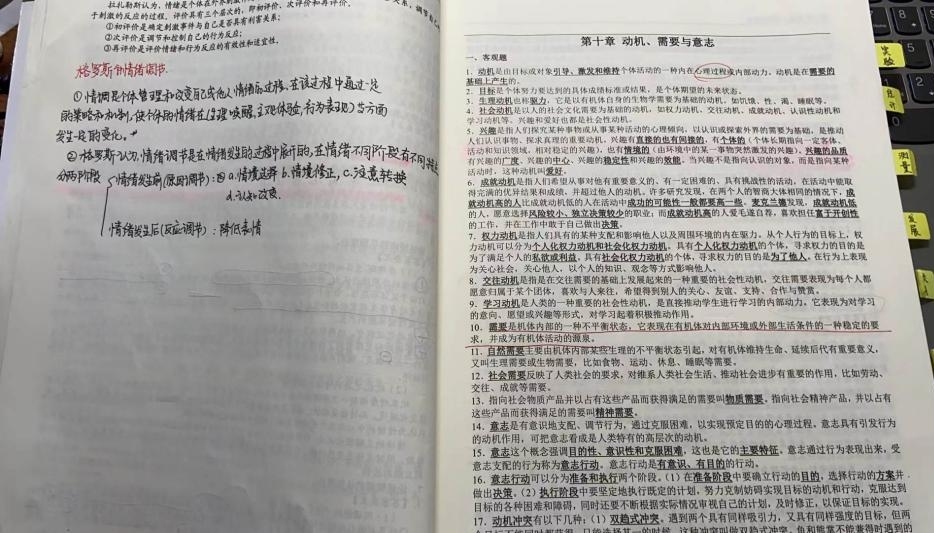 拉扎勒斯认为，情绪是个体在外
于刺激的反应的过程。评价具有三个层次的，即初评价、次评价和再评价。
①初评价是确定刺激事件与自己是否具有利害关系；
②次评价是调节和控制自己的行为反应；
③再评价是评价情绪和行为反应的有效性和适宜性。
格罗斯的情绪调节.
①情调是个体管理和改变自己或他人情绪的过程，在该过程中通过一定
的策略和机制，使个体的情绪在(生理唤醒，主观体验，行为表现)等方面
发生一定的变化。
②格罗斯认为，情绪调节是在情绪发生的过程中展开的，在情绪不同阶段有不同
分两阶段 情绪发生前(原因调节)：a.情境选择 b.情境修正，c.注意转换
d.认知改变
情绪发生后(反应调节)：降低表情
第十章 动机、需要与意志
一、客观题
1. 动机是由目标或对象引导、激发和维持个体活动的一种内在心理过程或内部动力。动机是在需要的
基础上产生的。
2. 目标是个体努力要达到的具体成绩标准或结果，是个体期望的未来状态。
3. 生理动机也称驱力，它是以有机体自身的生物学需要为基础的动机，如饥饿、性、渴、睡眠等。
4. 社会动机是以人的社会文化需要为基础的动机，如权力动机、交往动机、成就动机、认识性动机和
学习动机等。兴趣和爱好也都是社会性动机。
5. 兴趣是指人们探究某种事物或从事某种活动的心理倾向，以认识或探索外界的需要为基础，是推动
人们认识事物、探求真理的重要动机。兴趣有直接的也有间接的，有个体的（个体长期指向一定客体、
活动和知识领域，相对稳定的兴趣），也有情境的（由环境中的某一事物突然激发的兴趣）。兴趣的品质
有兴趣的广度、兴趣的中心、兴趣的稳定性和兴趣的效能。当兴趣不是指向认识的对象，而是指向某种
活动时，这种动机叫爱好。
6. 成就动机是指人们希望从事对他有重要意义的、有一定困难的、具有挑战性的活动，在活动中能取
得完满的优异结果和成绩，并超过他人的动机。许多研究发现，在两个人的智商大体相同的情况下，成
就动机高的人比成就动机低的人在活动中成功的可能性一般都要高一些。麦克兰德发现，成就动机低
的人，愿意选择风险较小、独立决策较少的职业；而成就动机高的人爱毛遂自荐，喜欢担任富于开创性
的工作，并在工作中敢于自己做出决策。
7. 权力动机是指人们具有的某种支配和影响他人以及周围环境的内在驱力。从个人行为的目标上，权
力动机可以分为个人化权力动机和社会化权力动机。具有个人化权力动机的个体，寻求权力的目的是
为了满足个人的私欲或利益。具有社会化权力动机的个体，寻求权力的目的是为了他人。在行为上表现
为关心社会，关心他人，以个人的知识、观念等方式影响他人。
8. 交往动机是指是在交往需要的基础上发展起来的一种重要的社会性动机，交往需要表现为每个人都
愿意归属于某个团体，喜欢与人来往，希望得到别人的关心、友谊、支持、合作与赞赏。
9. 学习动机是人类的一种重要的社会性动机，是直接推动学生进行学习的内部动力。它表现为对学习
的意向、愿望或兴趣等形式，对学习起着积极推动作用。
10. 需要是机体内部的一种不平衡状态，它表现在有机体对内部环境或外部生活条件的一种稳定的要
求，并成为有机体活动的源泉。
11. 自然需要主要由机体内部某些生理的不平衡状态引起，对有机体维持生命、延续后代有重要意义，
又叫生理需要或生物需要，比如食物、运动、休息、睡眠等需要。
12. 社会需要反映了人类社会的要求，对维系人类社会生活、推动社会进步有重要的作用，比如劳动、
交往、成就等需要。
13. 指向社会物质产品并以占有这些产品而获得满足的需要叫物质需要。指向社会精神产品，并以占有
这些产品而获得满足的需要叫精神需要。
14. 意志是有意识地支配、调节行为，通过克服困难，以实现预定目的的心理过程。意志具有引发行为
的动机作用，可把意志看成是人类特有的高层次的动机。
15. 意志这个概念强调目的性、意识性和克服困难，这也是它的主要特征。意志通过行为表现出来，受
意志支配的行为称为意志行动。意志行动是有意识、有目的的行动。
16. 意志行动可以分为准备和执行两个阶段。（1）在准备阶段中要确立行动的目的，选择行动的方案并
做出决策。（2）执行阶段中要坚定地执行既定的计划，努力克制妨碍实现目标的动机和行动，克服达到
目标的各种困难和障碍，同时还要不断根据实际情况审视自己的计划，及时修正，以保证目标的实现。
17. 动机冲突有以下几种：（1）双趋式冲突。遇到两个具有同样吸引力，又具有同样强度的目标，但两
实验
统计
测量
发展